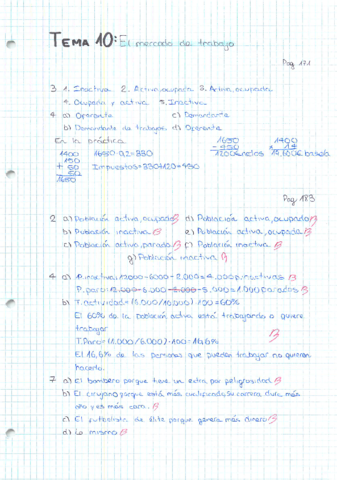 TEMA 10: El mercado de trabajo
Pag 171
3 1. Inactiva 2. Activa, ocupada 3. Activa, ocupada
4. Ocupada y activa 5. Inactiva
4 a) Oferente c) Demandante
b) Demandante de trabajo d) Oferente
En la práctica
1400 1650·0.2=330 1650 1400
150 Impuestos=330+120=450 - 450 × 14
+ 50 1200€ netos 19,600€ basab.
50
1650
Pag 183
2 a) Población activa, ocupada B d) Población activa, ocupada B
b) Población inactiva B e) Población activa, ocupada B
c) Población activa, parada B f) Población inactiva B
g) Población inactiva B
4 a) P. inactiva: 12000-6000-2.000=4.000 p. inactivas B
P. paro: 6.000 - 5.000=1.000 parados B
b) T. actividad=(6.000/10.000)·100=60%
El 60% de la población activa está trabajando o quiere
trabajar
T. Paro=(1.000/6.000)·100=16,6% B
El 16,6% de las personas que pueden trabajar no quieren
hacerlo.
7 a) El bombero porque tiene un extra por peligrosidad B
b) El cirujano porque está más cualificado, su carrera dura más
año y es más com. B
c) El futbolista de élite porque genera más dinero B
d) Lo mismo B